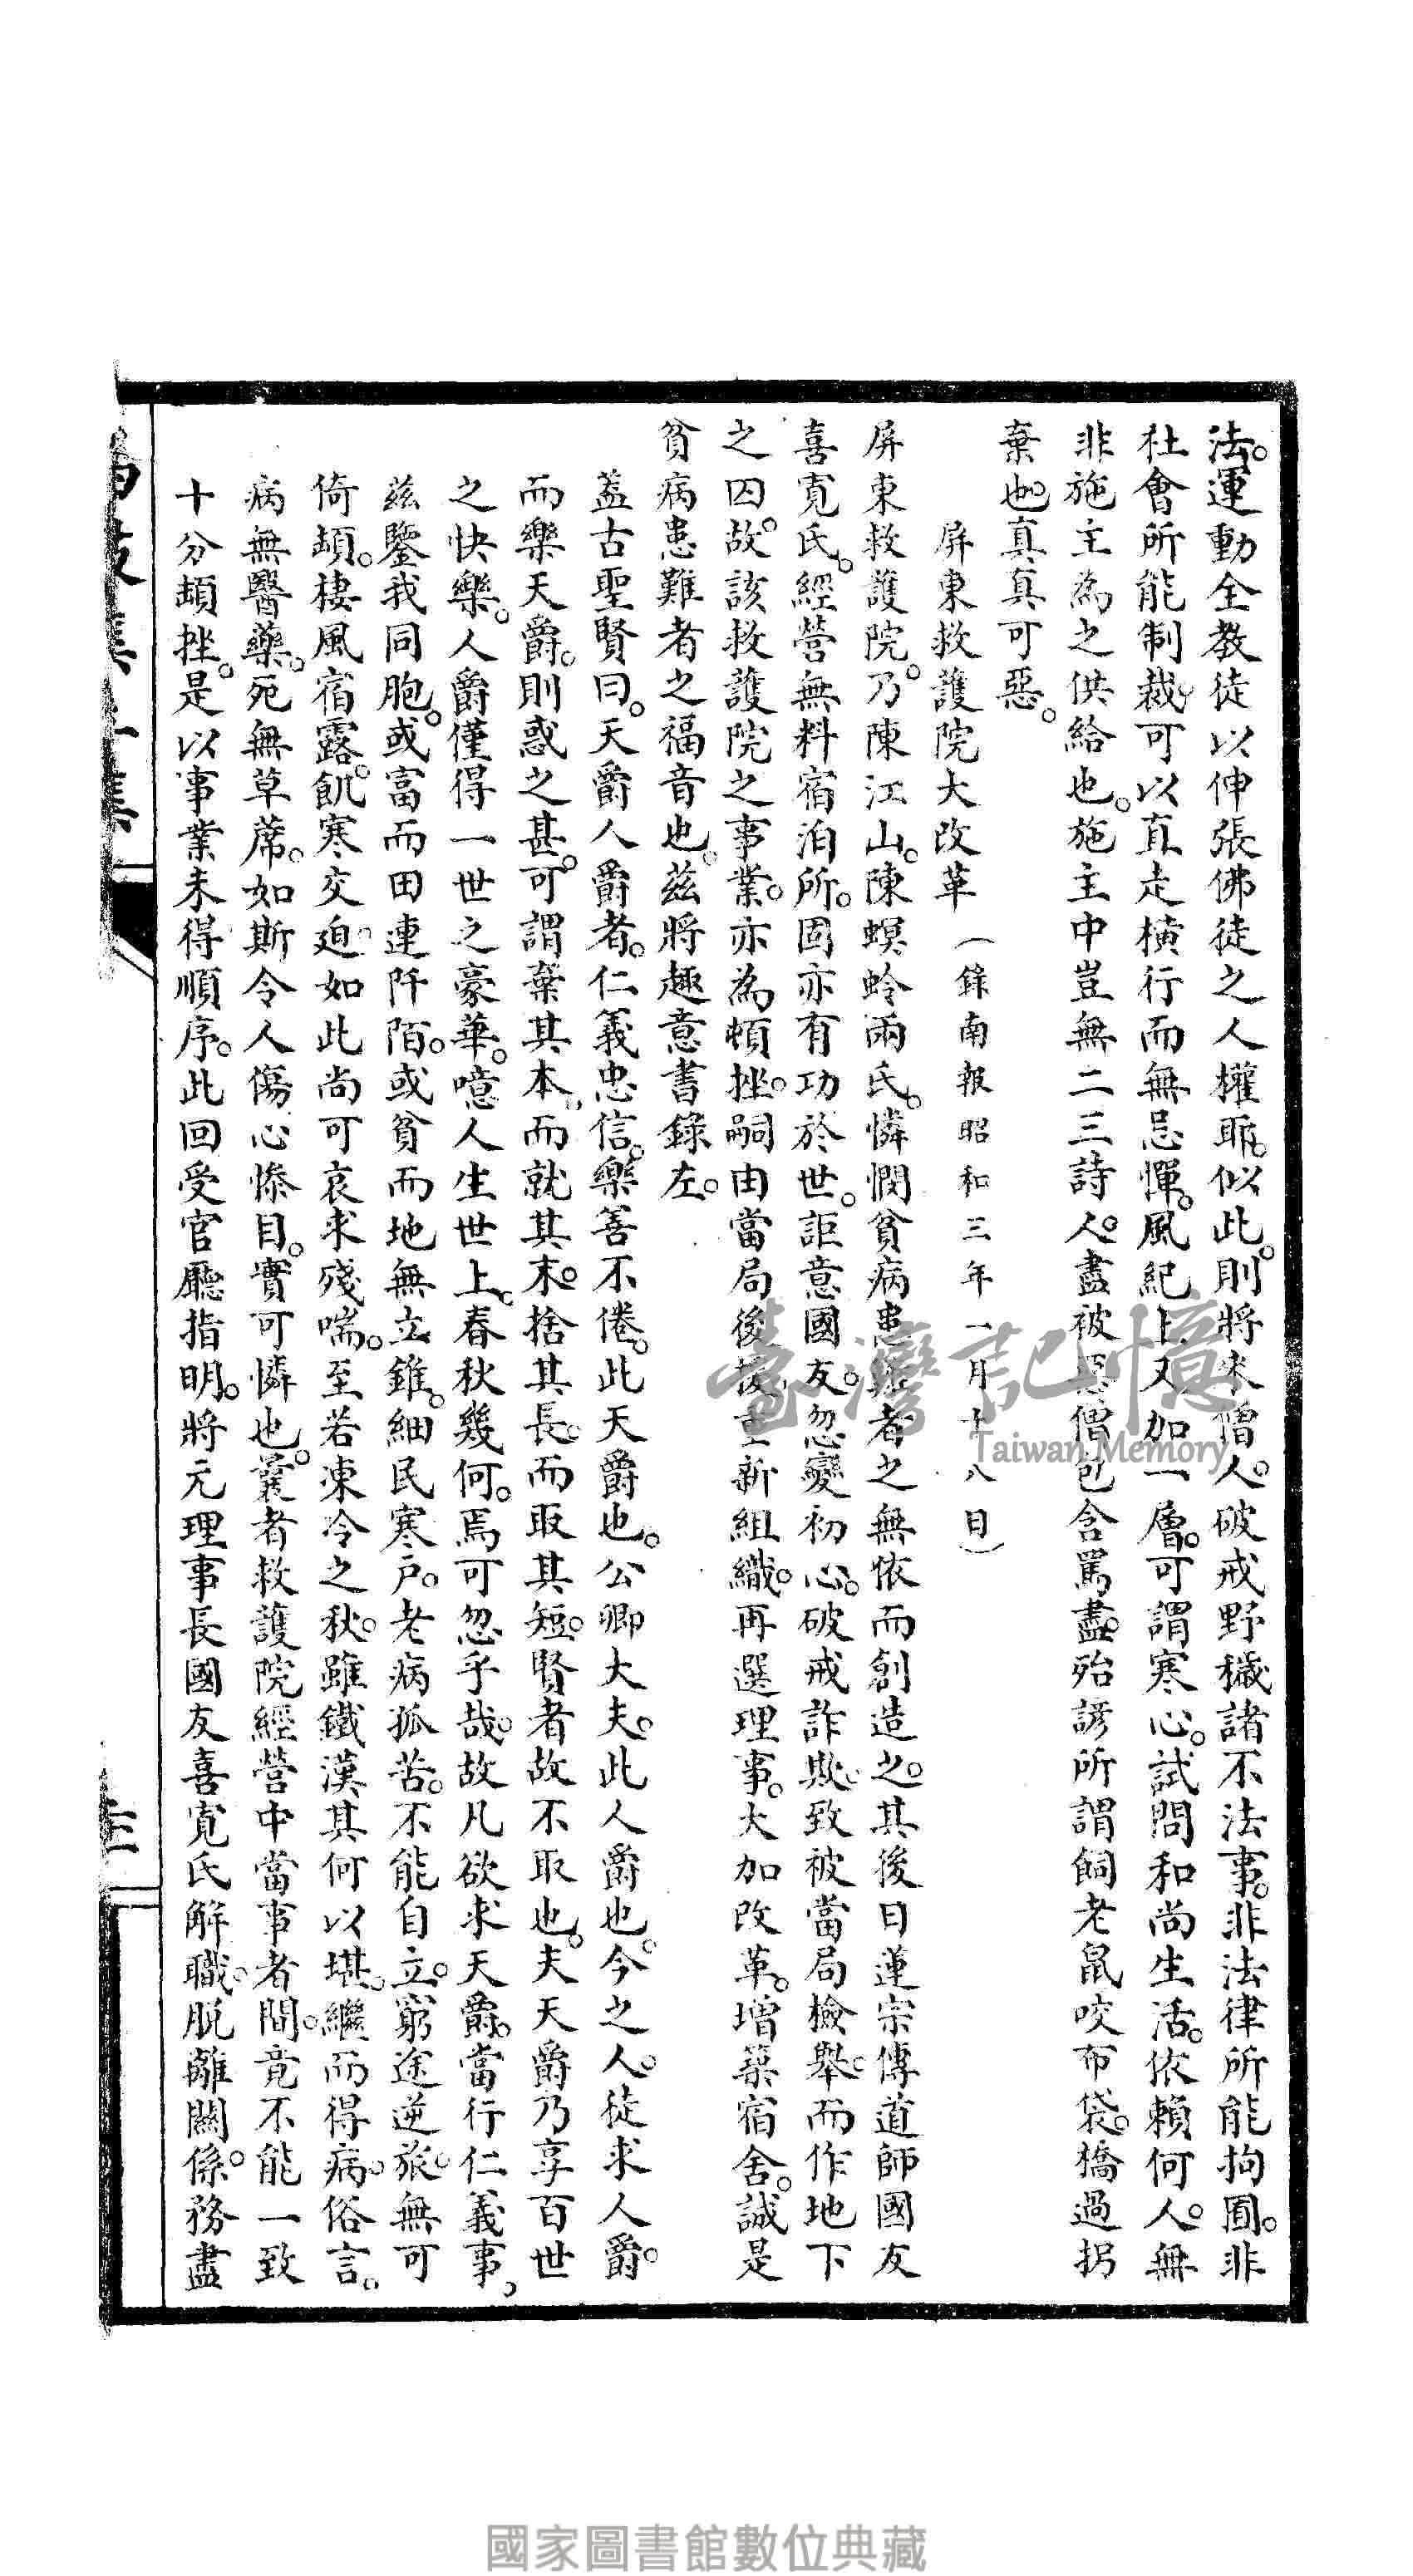 法。運動全教徒以伸張佛徒之人權耶。似此。則將來僧人。破戒野穢諸不法事。非法律所能拘囿。非
社會所能制裁。可以直走橫行而無忌憚。風紀上又加一層。可謂寒心。試問和尚生活。依賴何人。無
非施主為之供給也。施主中豈無二三詩人。盡被惡僧包含罵盡。殆諺所謂飼老鼠咬布袋。橋過拐
棄也。真真可惡。
屏東救護院大改革 (錄南報昭和三年一月十八日)
屏東救護院。乃陳江山。陳螟蛉兩氏。憐憫貧病患難者之無依而創造之。其後日蓮宗傳道師國友
喜寬氏。經營無料宿泊所。固亦有功於世。詎意國友。忽變初心。破戒詐欺。致被當局檢舉。而作地下
之囚。故該救護院之事業。亦為頓挫。嗣由當局後援重新組織。再選理事。大加改革。增築宿舍。誠是
貧病患難者之福音也。茲將趣意書錄左。
蓋古聖賢曰。天爵人爵者。仁義忠信。樂善不倦。此天爵也。公卿大夫。此人爵也。今之人。徒求人爵。
而樂天爵。則惑之甚。可謂棄其本。而就其末。捨其長。而取其短。賢者故不取也。夫天爵乃享百世
之快樂。人爵僅得一世之豪華。噫人生世上。春秋幾何。焉可忽乎哉。故凡欲求天爵。當行仁義事。
茲鑒我同胞。或富而田連阡陌。或貧而地無立錐。細民寒戶。老病孤苦。不能自立。窮途逆旅。無可
倚頼。棲風宿露。飢寒交迫。如此尚可哀求殘喘。至若凍冷之秋。雖鐵漢其何以堪。繼而得病。俗言。
病無醫藥。死無草蓆。如斯令人傷心慘目。實可憐也。曩者救護院經營中。當事者間。竟不能一致
十分頓挫。是以事業未得順序。此回受官廳指明。將元理事長國友喜寬氏解職。脱離關係。務盡